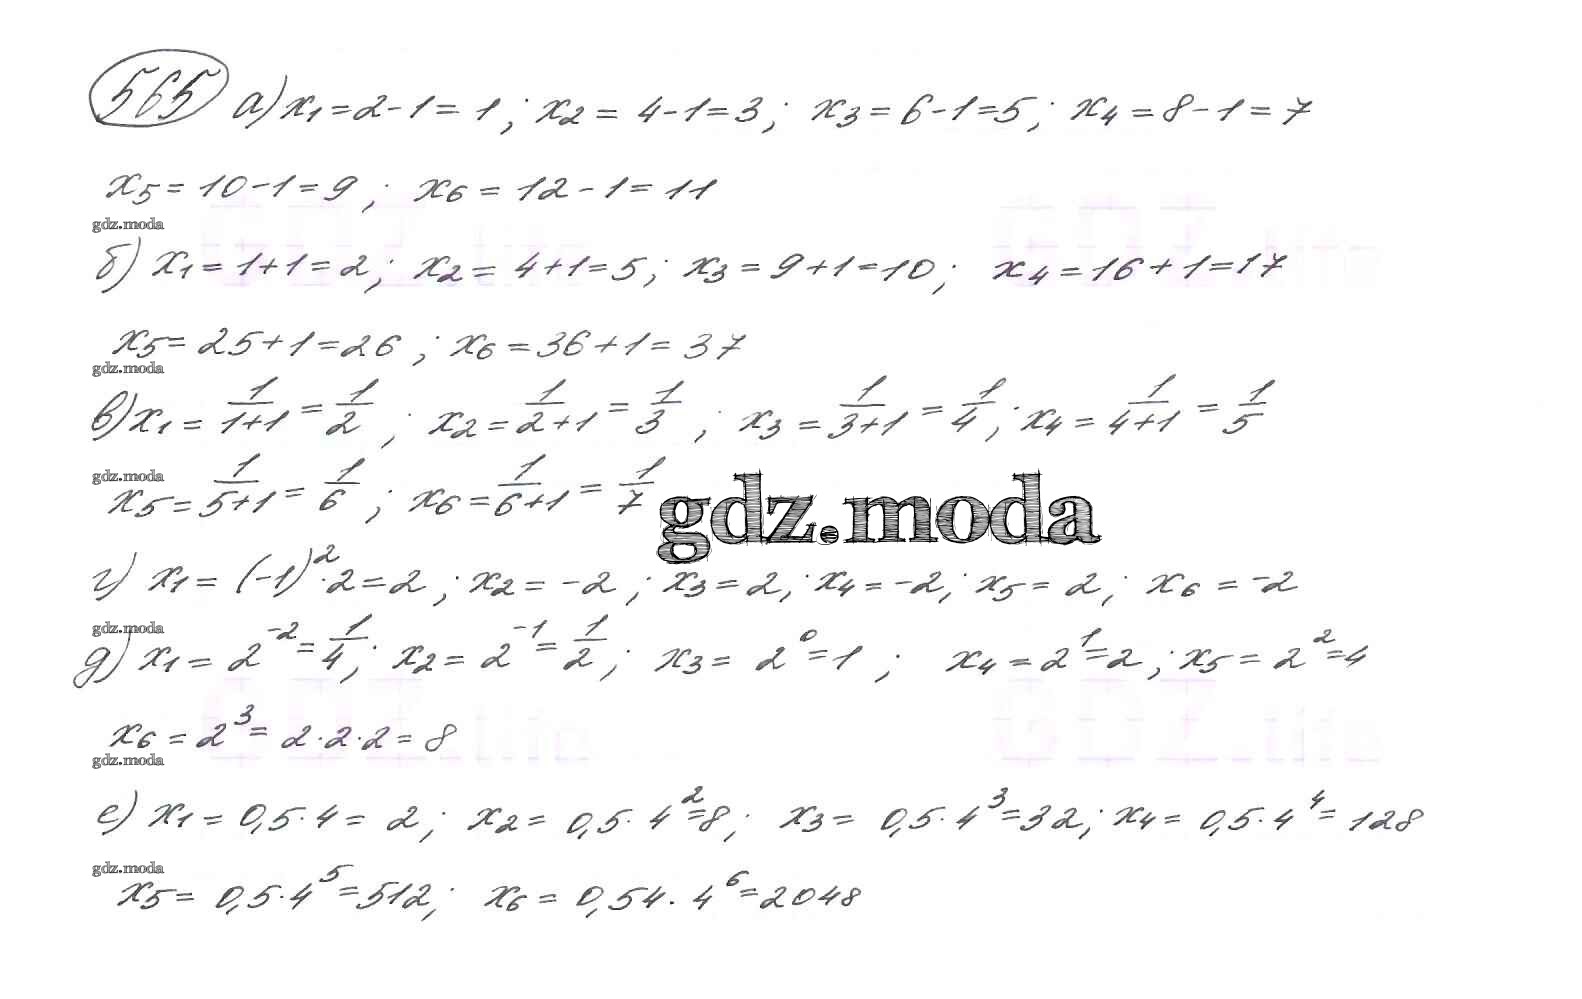 565 а) x₁ = 2 - 1 = 1; x₂ = 4 - 1 = 3; x₃ = 6 - 1 = 5; x₄ = 8 - 1 = 7
x₅ = 10 - 1 = 9; x₆ = 12 - 1 = 11
gdz.moda
б) x₁ = 1 + 1 = 2; x₂ = 4 + 1 = 5; x₃ = 9 + 1 = 10; x₄ = 16 + 1 = 17
x₅ = 25 + 1 = 26; x₆ = 36 + 1 = 37
gdz.moda
в) x₁ = 1/(1+1) = 1/2; x₂ = 1/(2+1) = 1/3; x₃ = 1/(3+1) = 1/4; x₄ = 1/(4+1) = 1/5
gdz.moda
x₅ = 1/(5+1) = 1/6; x₆ = 1/(6+1) = 1/7
gdz.moda
г) x₁ = (-1)² · 2 = 2; x₂ = -2; x₃ = 2; x₄ = -2; x₅ = 2; x₆ = -2
gdz.moda
д) x₁ = 2⁻² = 1/4; x₂ = 2⁻¹ = 1/2; x₃ = 2⁰ = 1; x₄ = 2¹ = 2; x₅ = 2² = 4
x₆ = 2³ = 2 · 2 · 2 = 8
gdz.moda
е) x₁ = 0,5 · 4 = 2; x₂ = 0,5 · 4² = 8; x₃ = 0,5 · 4³ = 32; x₄ = 0,5 · 4⁴ = 128
gdz.moda
x₅ = 0,5 · 4⁵ = 512; x₆ = 0,54 · 4⁶ = 2048